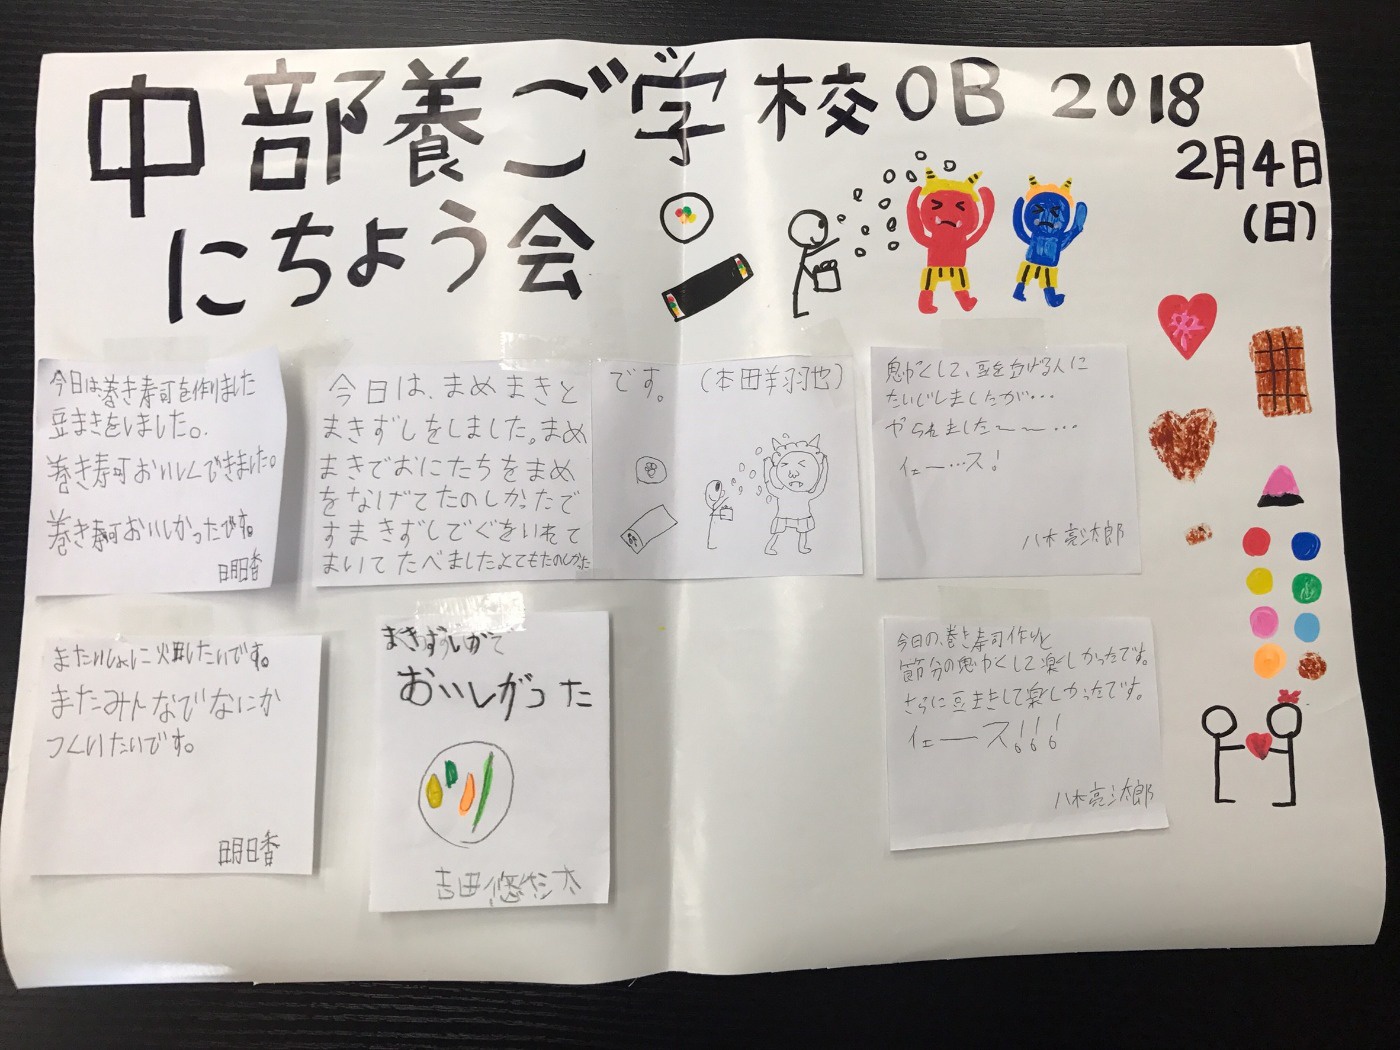 中部養ご学校OB 2018
2月4日
(日)
にちょう会
今日は巻き寿司を作りました
豆まきをしました。
巻き寿司おいしくできました。
巻き寿司おいしかったです。
明日香
今日は、まめまきと
まきずしをしました。まめ
まきでおにたちをまめ
をなげてたのしかったで
すまきずしでぐをいれて
まいてたべましたとてもたのしかった
です。(本田羊羽也)
鬼かくして、豆を投げる人に
たいじしましたが・・・
やられました〜〜・・・
イェー・・・ス!
八木亮太郎
またいしょに畑したいです。
またみんなでなにか
つくりたいです。
明日香
まきずしがで
おいしがった
吉田悠太
今日の、巻き寿司作りと
節分の鬼かくして楽しかったです。
さらに豆まきして楽しかったです。
イェーース!!!
八木亮太郎